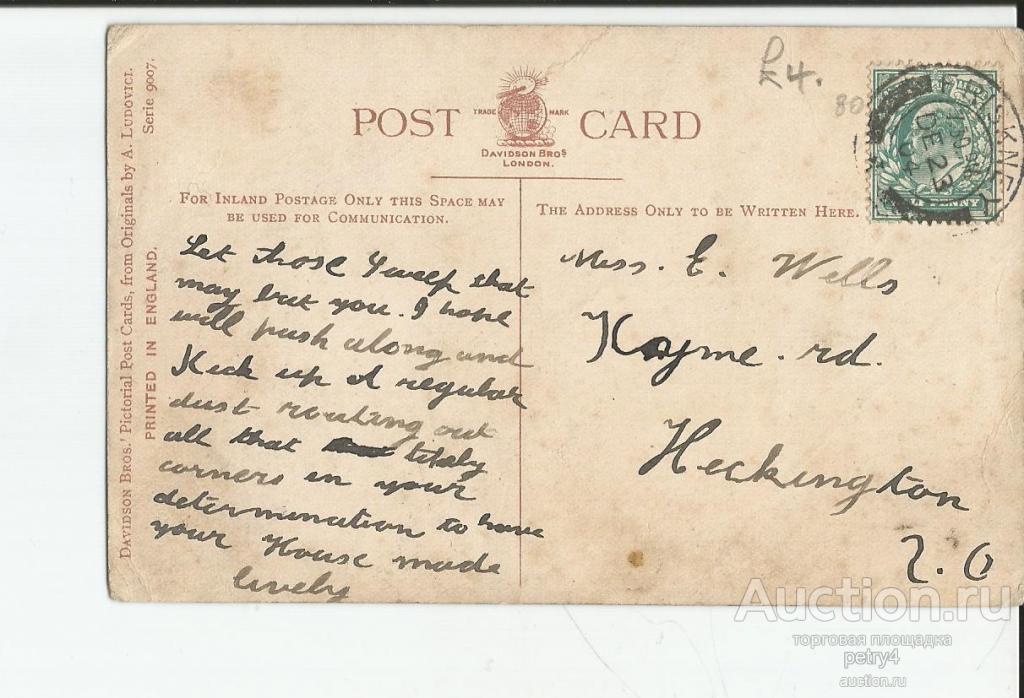 DAVIDSON BROS.' Pictorial Post Cards, from Originals by A. LUDOVICI.
Serie 9007.
PRINTED IN ENGLAND.
£4.
80
POST CARD
TRADE MARK
DAVIDSON BROS
LONDON.
FOR INLAND POSTAGE ONLY THIS SPACE MAY
BE USED FOR COMMUNICATION.
THE ADDRESS ONLY TO BE WRITTEN HERE.
DE 23
Let those sweep that
may but you. I hope
will push along and
Kick up A regular
dust routing out
all that
corners in your
determination to have
your House made
lively
Miss. E. Wells
Kyme. rd.
Heckington
Auction.ru
торговая площадка
petry4
auction.ru